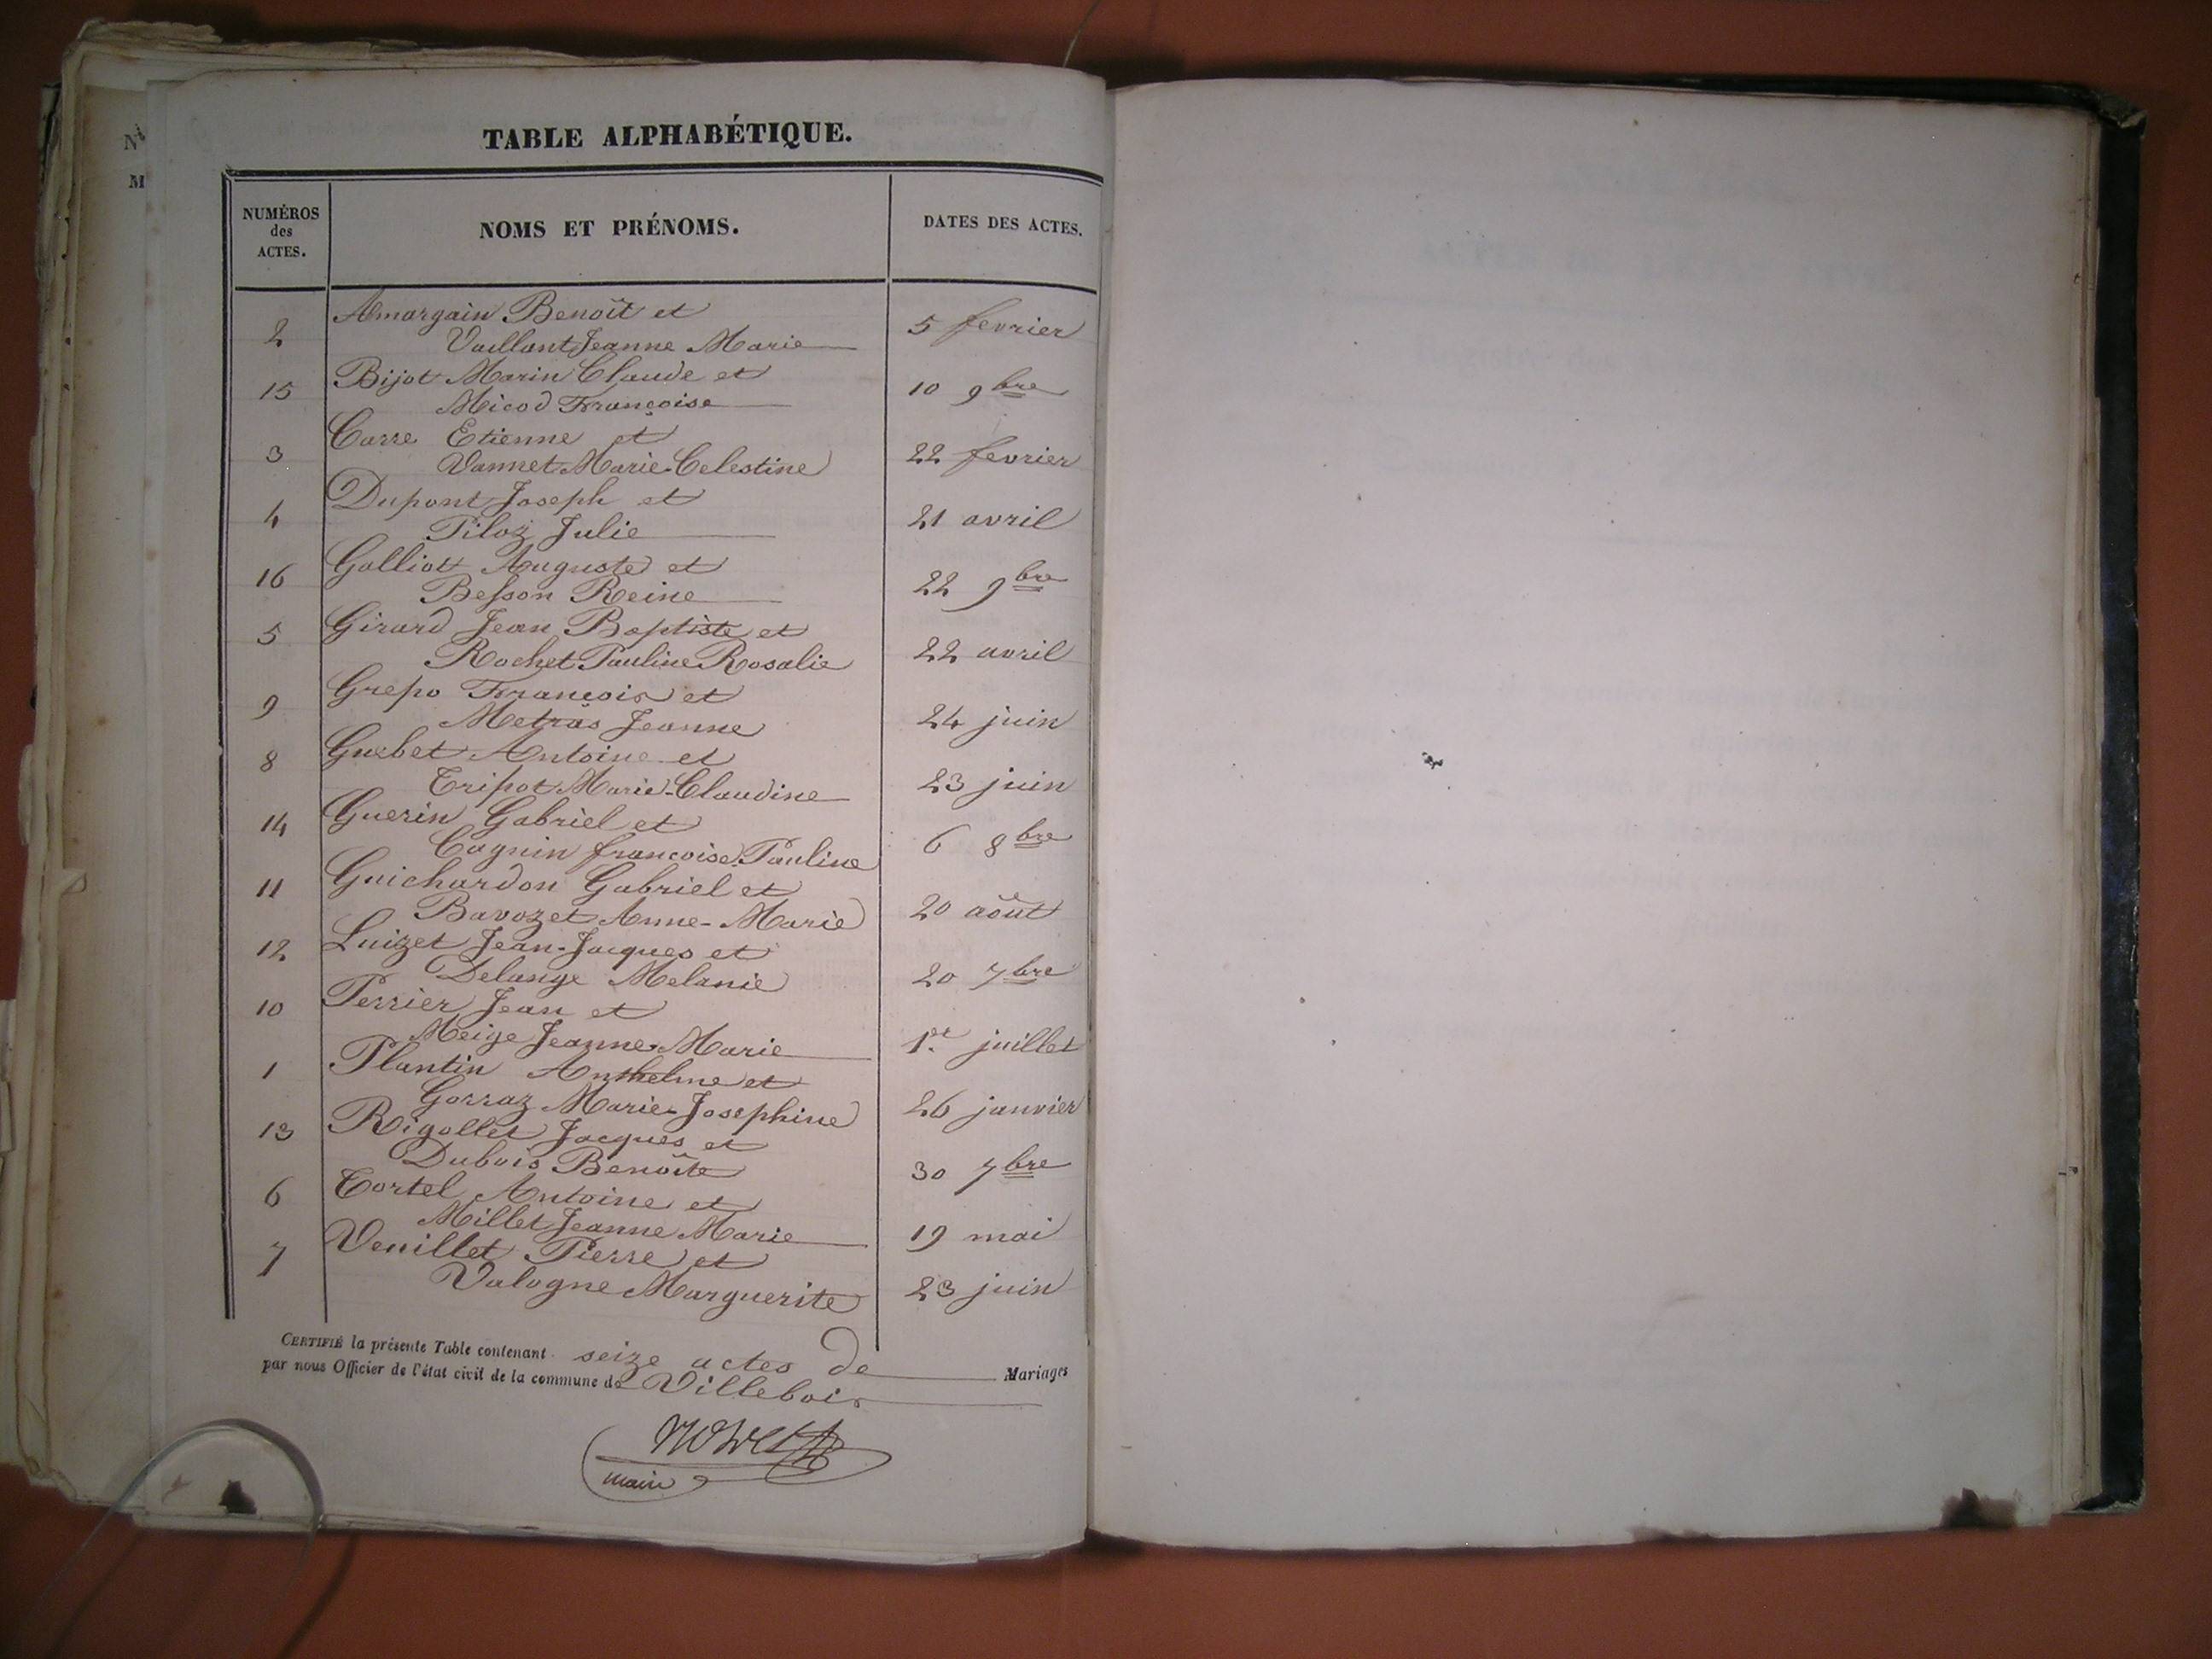 TABLE ALPHABÉTIQUE.
NUMÉROS des ACTES. NOMS ET PRÉNOMS. DATES DES ACTES.
2 Amargain Benoît et
Vaillant Jeanne Marie 5 fevrier
15 Bijot Marin Claude et
Micod Françoise 10 9bre
3 Carre Etienne et
Vannet Marie-Celestine 22 fevrier
4 Dupont Joseph et
Piloz Julie 21 avril
16 Galliot Auguste et
Besson Reine 22 9bre
5 Girard Jean Baptiste et
Rochet Pauline Rosalie 22 avril
9 Grepo François et
Metras Jeanne 24 juin
8 Guebet Antoine et
Tripot Marie-Claudine 23 juin
14 Guerin Gabriel et
Cagnin françoise Pauline 6 8bre
11 Guichardon Gabriel et
Bavozet Anne-Marie 20 août
12 Luizet Jean-Jacques et
Delange Melanie 20 7bre
10 Perrier Jean et
Meige Jeanne-Marie 1er juillet
1 Plantin Anthelme et
Gorraz Marie-Josephine 26 janvier
13 Rigollet Jacques et
Dubois Benoîte 30 7bre
6 Tortel Antoine et
Millet Jeanne Marie 19 mai
7 Veuillet Pierre et
Valogne Marguerite 23 juin
CERTIFIÉ la présente Table contenant seize actes de Mariages
par nous Officier de l'état civil de la commune de Villebois
maire